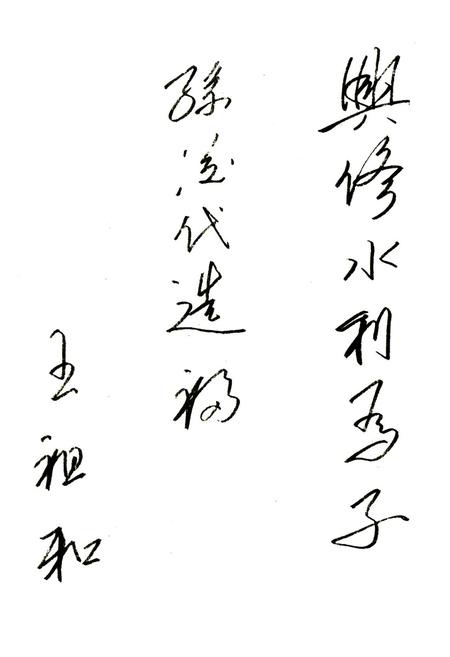 興修水利為子
孫後代造福
王祖和